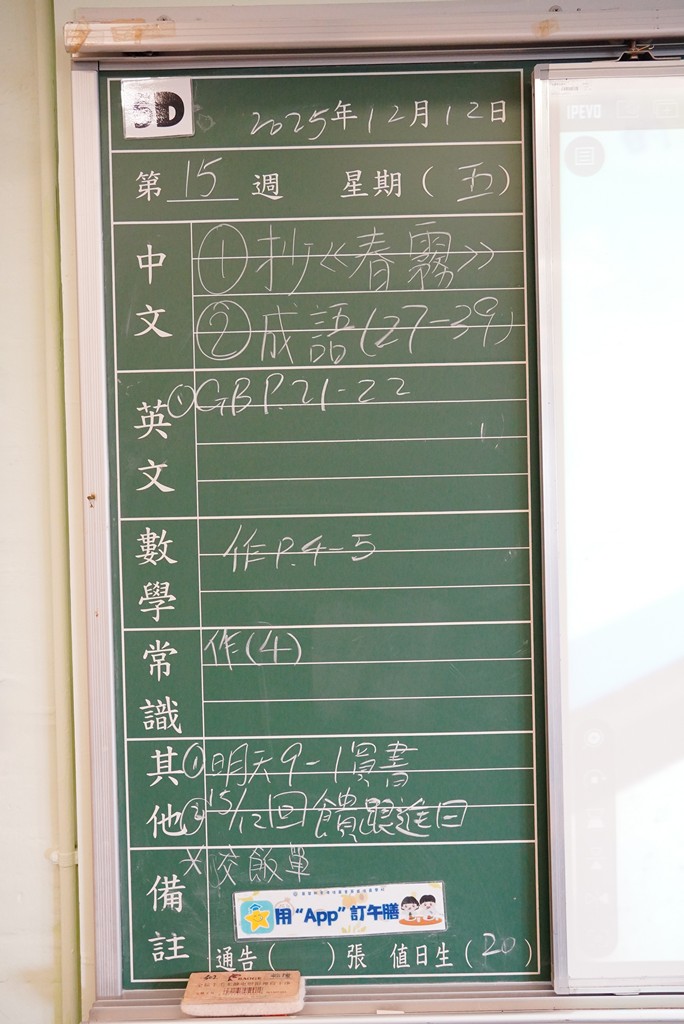 5D
2025年12月12日
第 15 週 星期(五)
中文
① 抄《春霧》
② 成語(27-39)
英文
① GB P.21-22
數學
作P.4-5
常識
作(4)
其他
① 明天9-1買書
② 15/12回饋跟進日
備註
*交飯單
用“App”訂午膳
通告( )張 值日生(20)
IPEVO